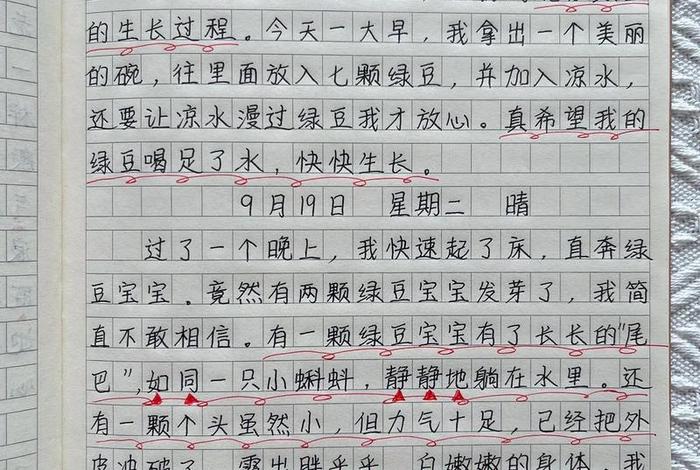 的生长过程。今天一大早，我拿出一个美丽
的碗，往里面放入七颗绿豆，并加入凉水，
还要让凉水漫过绿豆我才放心。真希望我的
绿豆喝足了水，快快生长。
9月19日 星期二 晴
过了一个晚上，我快速起了床，直奔绿
豆宝宝。竟然有两颗绿豆宝宝发芽了，我简
直不敢相信。有一颗绿豆宝宝有了长长的"尾
巴"，如同一只小蝌蚪，静静地躺在水里。还
有一颗个头虽然小，但力气十足，已经把外
皮冲破了，露出胖乎乎、白嫩嫩的身体。我